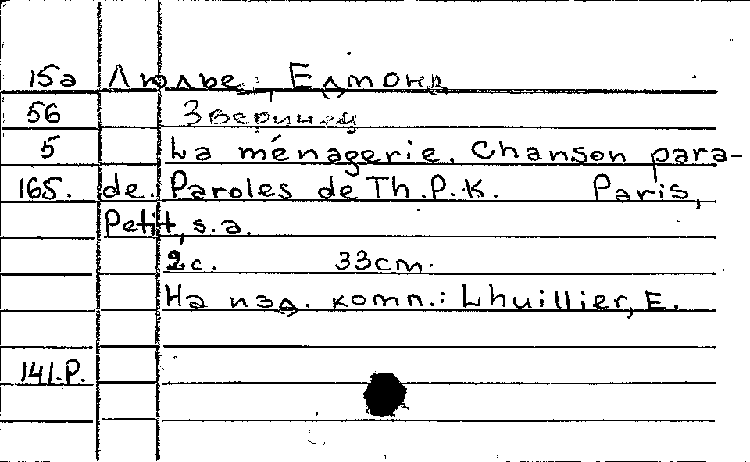 15а Люлье, Едмонд
56 Зверинец
5 La ménagerie. Chanson para-
165. de. Paroles de Th.P.K. Paris,
Petit, s.a.
2с. 33cm.
На изд. комп.: Lhuillier, E.
141.P.